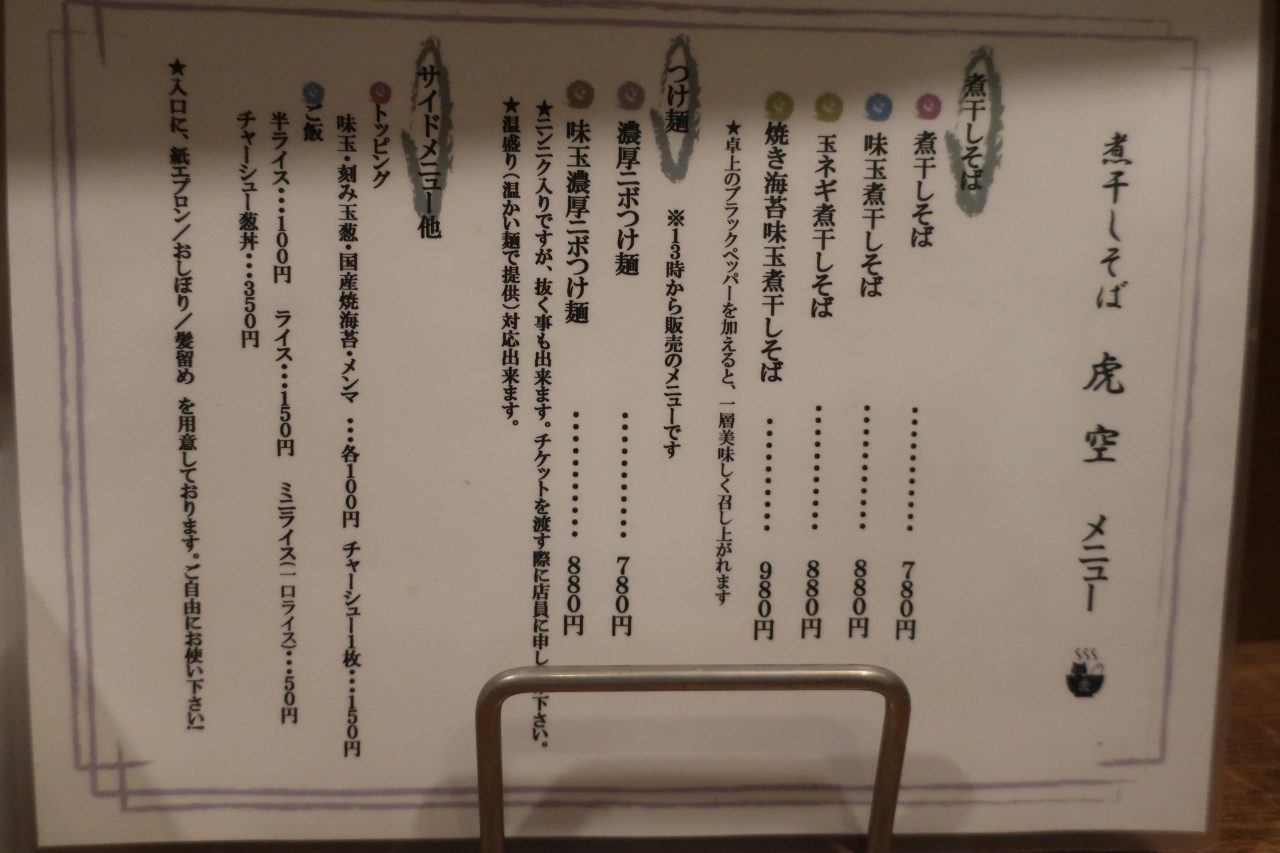 煮干しそば 虎空 メニュー
煮干しそば
煮干しそば ・・・・・・・・・・ 780円
味玉煮干しそば ・・・・・・・・・・ 880円
玉ネギ煮干しそば ・・・・・・・・・・ 880円
焼き海苔味玉煮干しそば ・・・・・・・・・ 980円
★卓上のブラックペッパーを加えると、一層美味しく召し上がれます
つけ麺 ※13時から販売のメニューです
濃厚ニボつけ麺 ・・・・・・・・・・ 780円
味玉濃厚ニボつけ麺 ・・・・・・・・・・ 880円
★ニンニク入りですが、抜く事も出来ます。チケットを渡す際に店員に申し 下さい。
★温盛り(温かい麺で提供)対応出来ます。
サイドメニュー他
トッピング
味玉・刻み玉葱・国産焼海苔・メンマ ・・・各100円 チャーシュー1枚・・・150円
ご飯
半ライス・・・100円 ライス・・・150円 ミニライス(一口ライス)・・・50円
チャーシュー葱丼・・・350円
★入口に、紙エプロン/おしぼり/髪留め を用意しております。ご自由にお使い下さい!